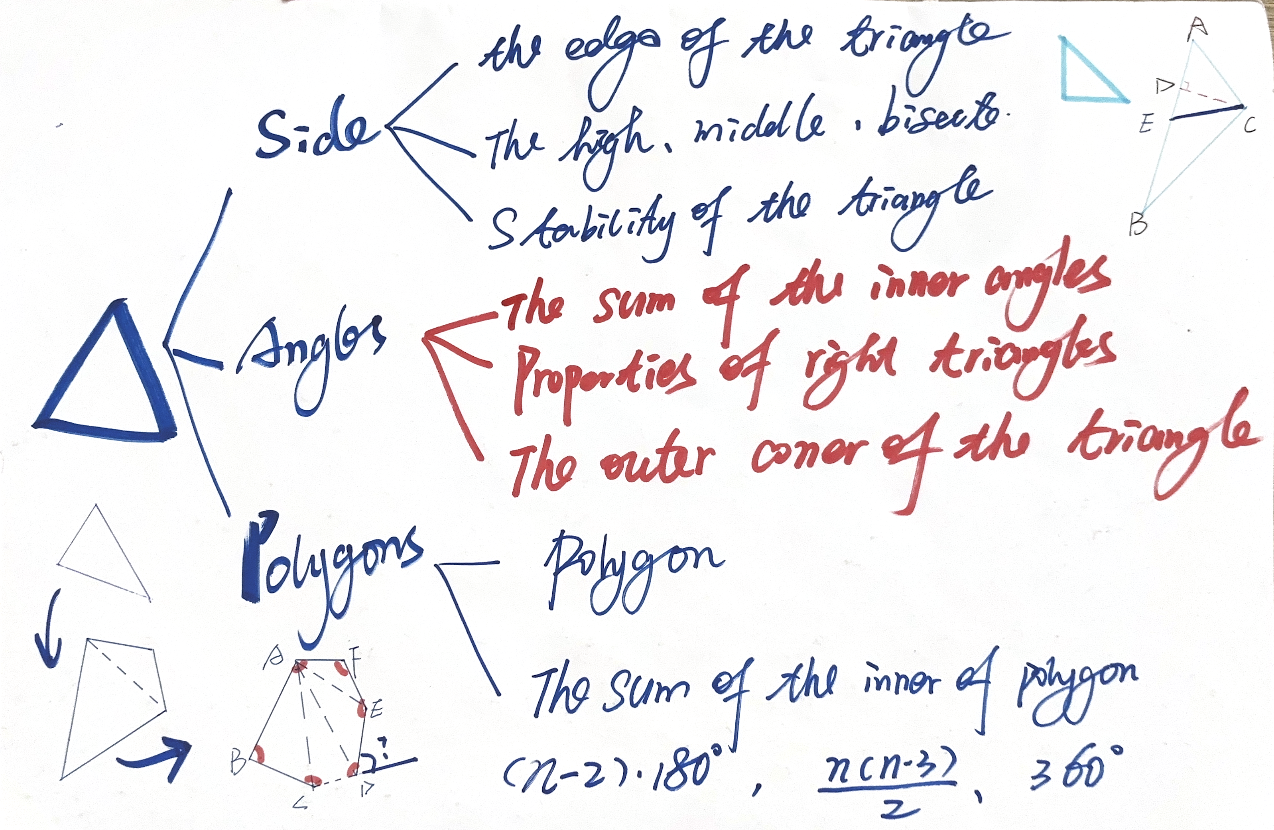 the edge of the triangle
Side
The high、middle、bisecte.
Stability of the triangle
A
D
E
C
B
The sum of the inner angles
Angles
Properties of right triangles
The outer coner of the triangle
Polygons
Polygon
A F
E
B
C D
?
The sum of the inner of polygon
(n-2)·180°, n(n-3)/2、360°